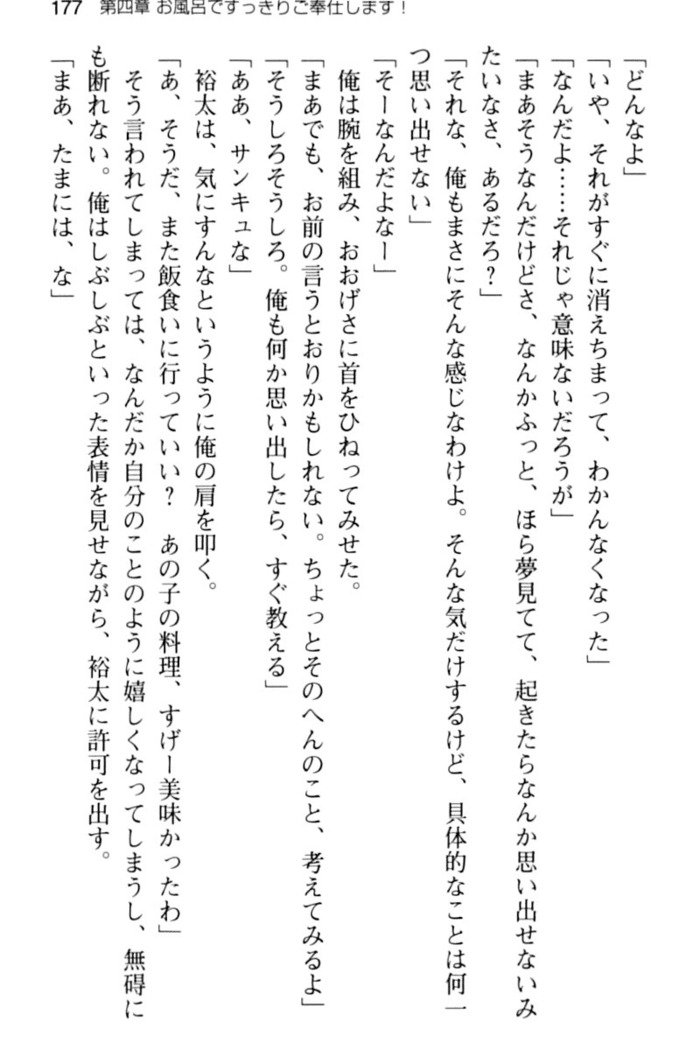 177　第四章 お風呂ですっきりご奉仕します！
「どんなよ」
「いや、それがすぐに消えちまって、わかんなくなった」
「なんだよ……それじゃ意味ないだろうが」
「まあそうなんだけどさ、なんかふっと、ほら夢見てて、起きたらなんか思い出せないみ
たいなさ、あるだろ？」
「それな、俺もまさにそんな感じなわけよ。そんな気だけするけど、具体的なことは何一
つ思い出せない」
「そーなんだよなー」
俺は腕を組み、おおげさに首をひねってみせた。
「まあでも、お前の言うとおりかもしれない。ちょっとそのへんのこと、考えてみるよ」
「そうしろそうしろ。俺も何か思い出したら、すぐ教える」
「ああ、サンキュな」
裕太は、気にすんなというように俺の肩を叩く。
「あ、そうだ、また飯食いに行っていい？　あの子の料理、すげー美味かったわ」
そう言われてしまっては、なんだか自分のことのように嬉しくなってしまうし、無碍に
も断れない。俺はしぶしぶといった表情を見せながら、裕太に許可を出す。
「まあ、たまには、な」